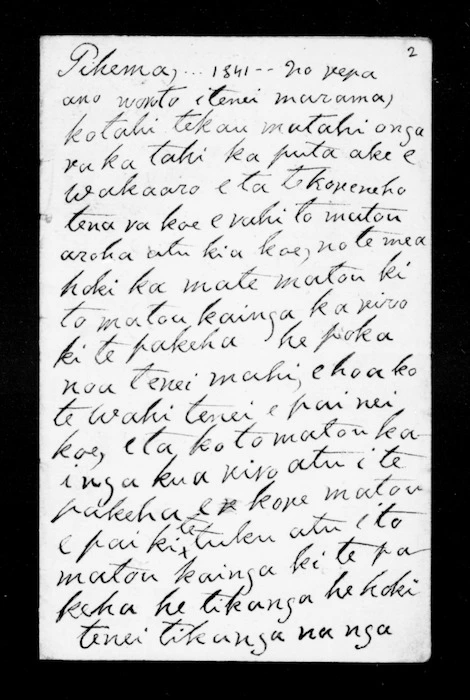 2
Tihema, ... 1841 -- No repa
ano wonto i tenei marama,
kotahi tekau matahi onga
ra ka tahi ka puta ake e
wakaaro e ta te kopeneha
tena ra koe e rahi to matou
aroha atu kia koe, no te mea
hoki ka mate matou ki
to matou kainga ka riro
ki te pakeha he poka
noa tenei mahi, e hoa ko
te wahi tenei e pai nei
koe, e ta, ko to matou ka-
inga kua riro atu i te
pakeha e kore matou
e pai ki te tuku atu i to
matou kainga ki te pa-
keha he tikanga he hoki
tenei tikanga na nga